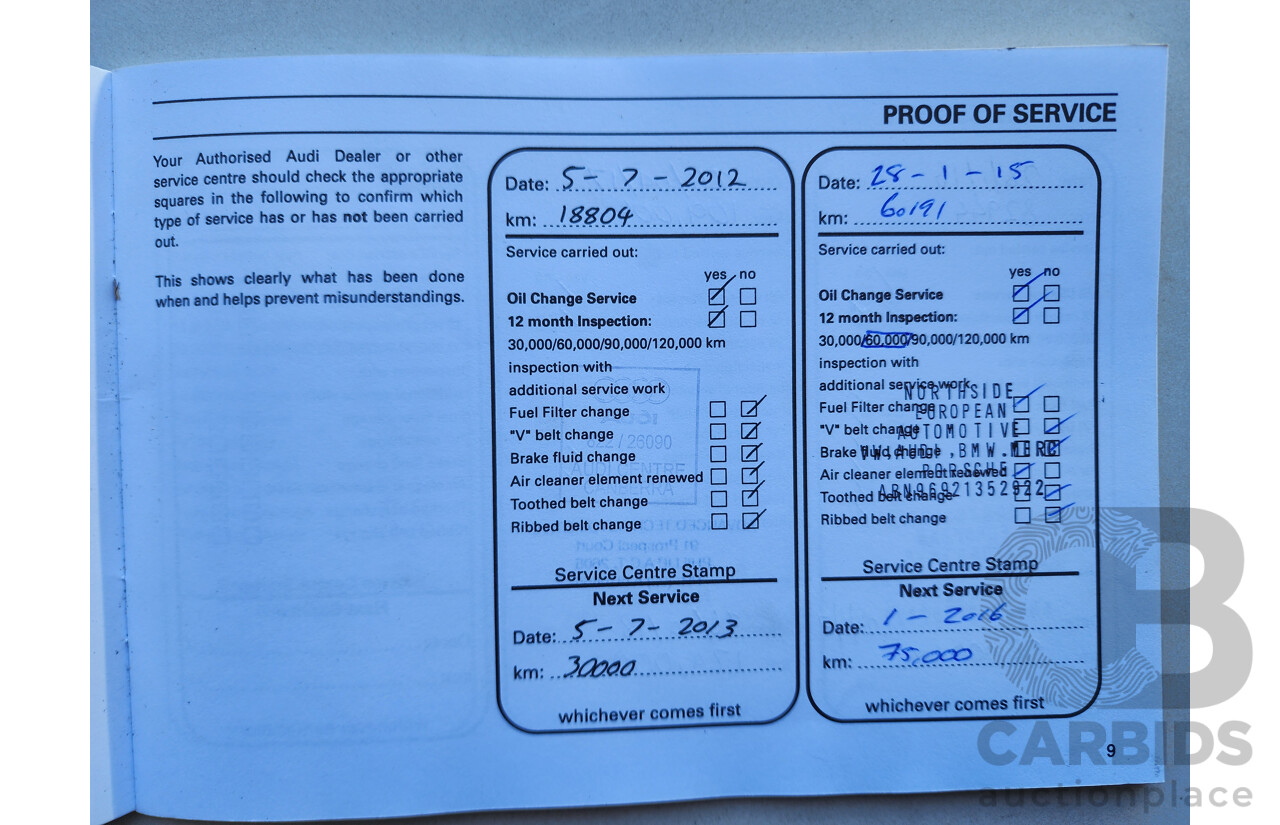 PROOF OF SERVICE
Your Authorised Audi Dealer or other
service centre should check the appropriate
squares in the following to confirm which
type of service has or has not been carried
out.
This shows clearly what has been done
when and helps prevent misunderstandings.
Date: 5-7-2012
km: 18804
Service carried out:
yes no
Oil Change Service
12 month Inspection:
30,000/60,000/90,000/120,000 km
inspection with
additional service work
Fuel Filter change
"V" belt change
Brake fluid change
Air cleaner element renewed
Toothed belt change
Ribbed belt change
Service Centre Stamp
Next Service
Date: 5-7-2013
km: 30000
whichever comes first
Date: 28-1-15
km: 60191
Service carried out:
yes no
Oil Change Service
12 month Inspection:
30,000/60,000/90,000/120,000 km
inspection with
additional service work
Fuel Filter change
"V" belt change
Brake fluid change
Air cleaner element renewed
Toothed belt change
Ribbed belt change
NORTHSIDE
EUROPEAN
AUTOMOTIVE
VW.AUDI.BMW.MERC
PORSCHE
ABN96921352922
Service Centre Stamp
Next Service
Date: 1-2016
km: 75,000
whichever comes first
9
CARBIDS
auctionplace